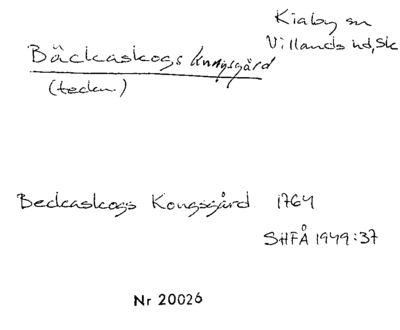 Kiaby sn
Villands hd, Sk
Bäckaskogs Kungsgård
(teckn)
Beckaskogs Kongsgård 1764
SHFÅ 1949:37
Nr 20026